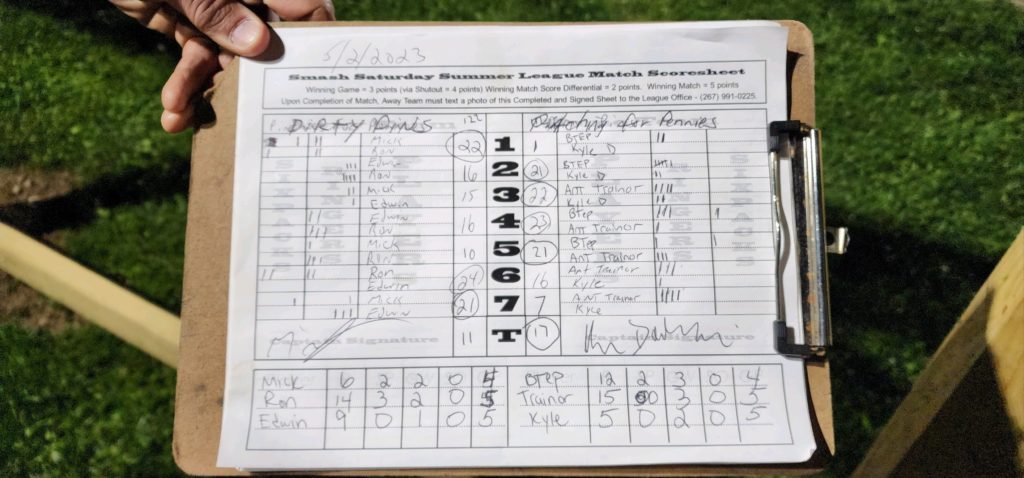 5/2/2023
Smash Saturday Summer League Match Scoresheet
Winning Game = 3 points (via Shutout = 4 points) Winning Match Score Differential = 2 points. Winning Match = 5 points
Upon Completion of Match, Away Team must text a photo of this Completed and Signed Sheet to the League Office - (267) 991-0225.
Dirty Pins 122 Pitching for Pennies
Mick 22 1 1 BTEP
Ron Kyle D
Edwin 16 2 21 BTEP
Ron Kyle D
Mick 15 3 22 Ant Trainor
Edwin Kyle D
Edwin 16 4 23 BTep
Ron Ant Trainor
Mick 10 5 21 BTep
Ron Ant Trainor
Ron 24 6 16 Ant Trainor
Edwin Kyle
Mick 21 7 7 Ant Trainor
Edwin Kyle
Captain Signature 11 T 17 Captain Signature
Mick 6 2 2 0 4 BTEP 12 2 3 0 4
Ron 14 3 2 0 5 Trainor 15 0 3 0 5
Edwin 9 0 1 0 5 Kyle 5 0 2 0 5